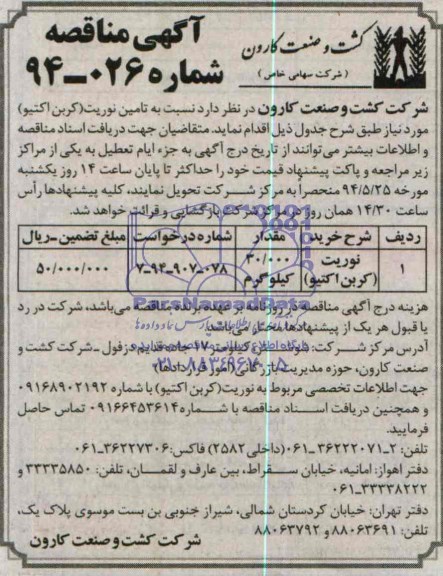 کشت و صنعت کارون
(شرکت سهامی خاص)
آگهی مناقصه
شماره ۰۲۶-۹۴
شرکت کشت و صنعت کارون در نظر دارد نسبت به تامین نوریت(کربن اکتیو)
مورد نیاز طبق شرح جدول ذیل اقدام نماید. متقاضیان جهت دریافت اسناد مناقصه
و اطلاعات بیشتر می‌توانند از تاریخ درج آگهی به جزء ایام تعطیل به یکی از مراکز
زیر مراجعه و پاکت پیشنهاد قیمت خود را حداکثر تا پایان ساعت ۱۴ روز یکشنبه
مورخه ۹۴/۵/۲۵ منحصراً به مرکز شرکت تحویل نمایند، کلیه پیشنهادها رأس
ساعت ۱۴/۳۰ همان روز در مرکز شرکت بازگشایی و قرائت خواهد شد.
ردیف شرح خرید مقدار شماره درخواست مبلغ تضمین-ریال
۱ نوریت (کربن اکتیو) ۳۰/۰۰۰ کیلوگرم ۹۴-۷-۹۰۷-۰۷۸ ۵۰/۰۰۰/۰۰۰
هزینه درج آگهی مناقصه در روزنامه بر عهده برنده مناقصه می‌باشد، شرکت در رد
یا قبول هر یک از پیشنهادها مختار می‌باشد.
آدرس مرکز شرکت: شوشتر، کیلومتر ۱۷ جاده قدیم دزفول -شرکت کشت و
صنعت کارون، حوزه مدیریت بازرگانی (امور قراردادها)
جهت اطلاعات تخصصی مربوط به نوریت(کربن اکتیو) با شماره ۰۹۱۶۸۹۰۲۱۹۲
و همچنین دریافت اسناد مناقصه با شماره ۰۹۱۶۶۴۵۳۶۱۴ تماس حاصل
فرمایید.
تلفن: ۲-۳۶۲۲۲۰۷۱-۰۶۱(داخلی ۲۵۸۲) فاکس: ۳۶۲۲۷۳۰۶-۰۶۱
دفتر اهواز: امانیه، خیابان سقراط، بین عارف و لقمان، تلفن: ۳۳۳۳۵۸۵۰ و
۳۳۳۳۸۲۲۲-۰۶۱
دفتر تهران: خیابان کردستان شمالی، شیراز جنوبی بن بست موسوی پلاک یک،
تلفن: ۸۸۰۶۳۶۹۱ و ۸۸۰۶۳۷۹۲
شرکت کشت و صنعت کارون